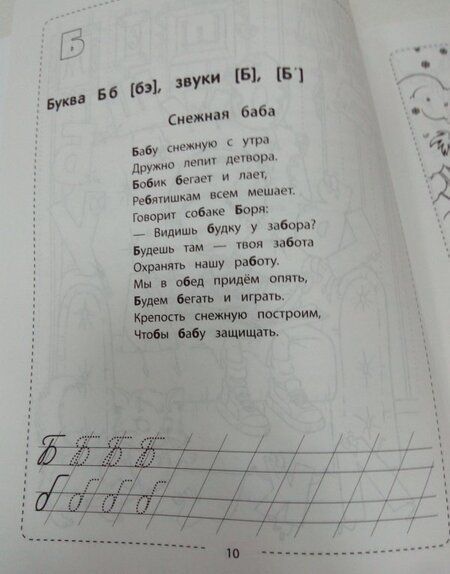 Б
Буква Бб [бэ], звуки [Б], [Б']
Снежная баба
Бабу снежную с утра
Дружно лепит детвора.
Бобик бегает и лает,
Ребятишкам всем мешает.
Говорит собаке Боря:
— Видишь будку у забора?
Будешь там — твоя забота
Охранять нашу работу.
Мы в обед придём опять,
Будем бегать и играть.
Крепость снежную построим,
Чтобы бабу защищать.
Б Б Б Б
б б б б
10